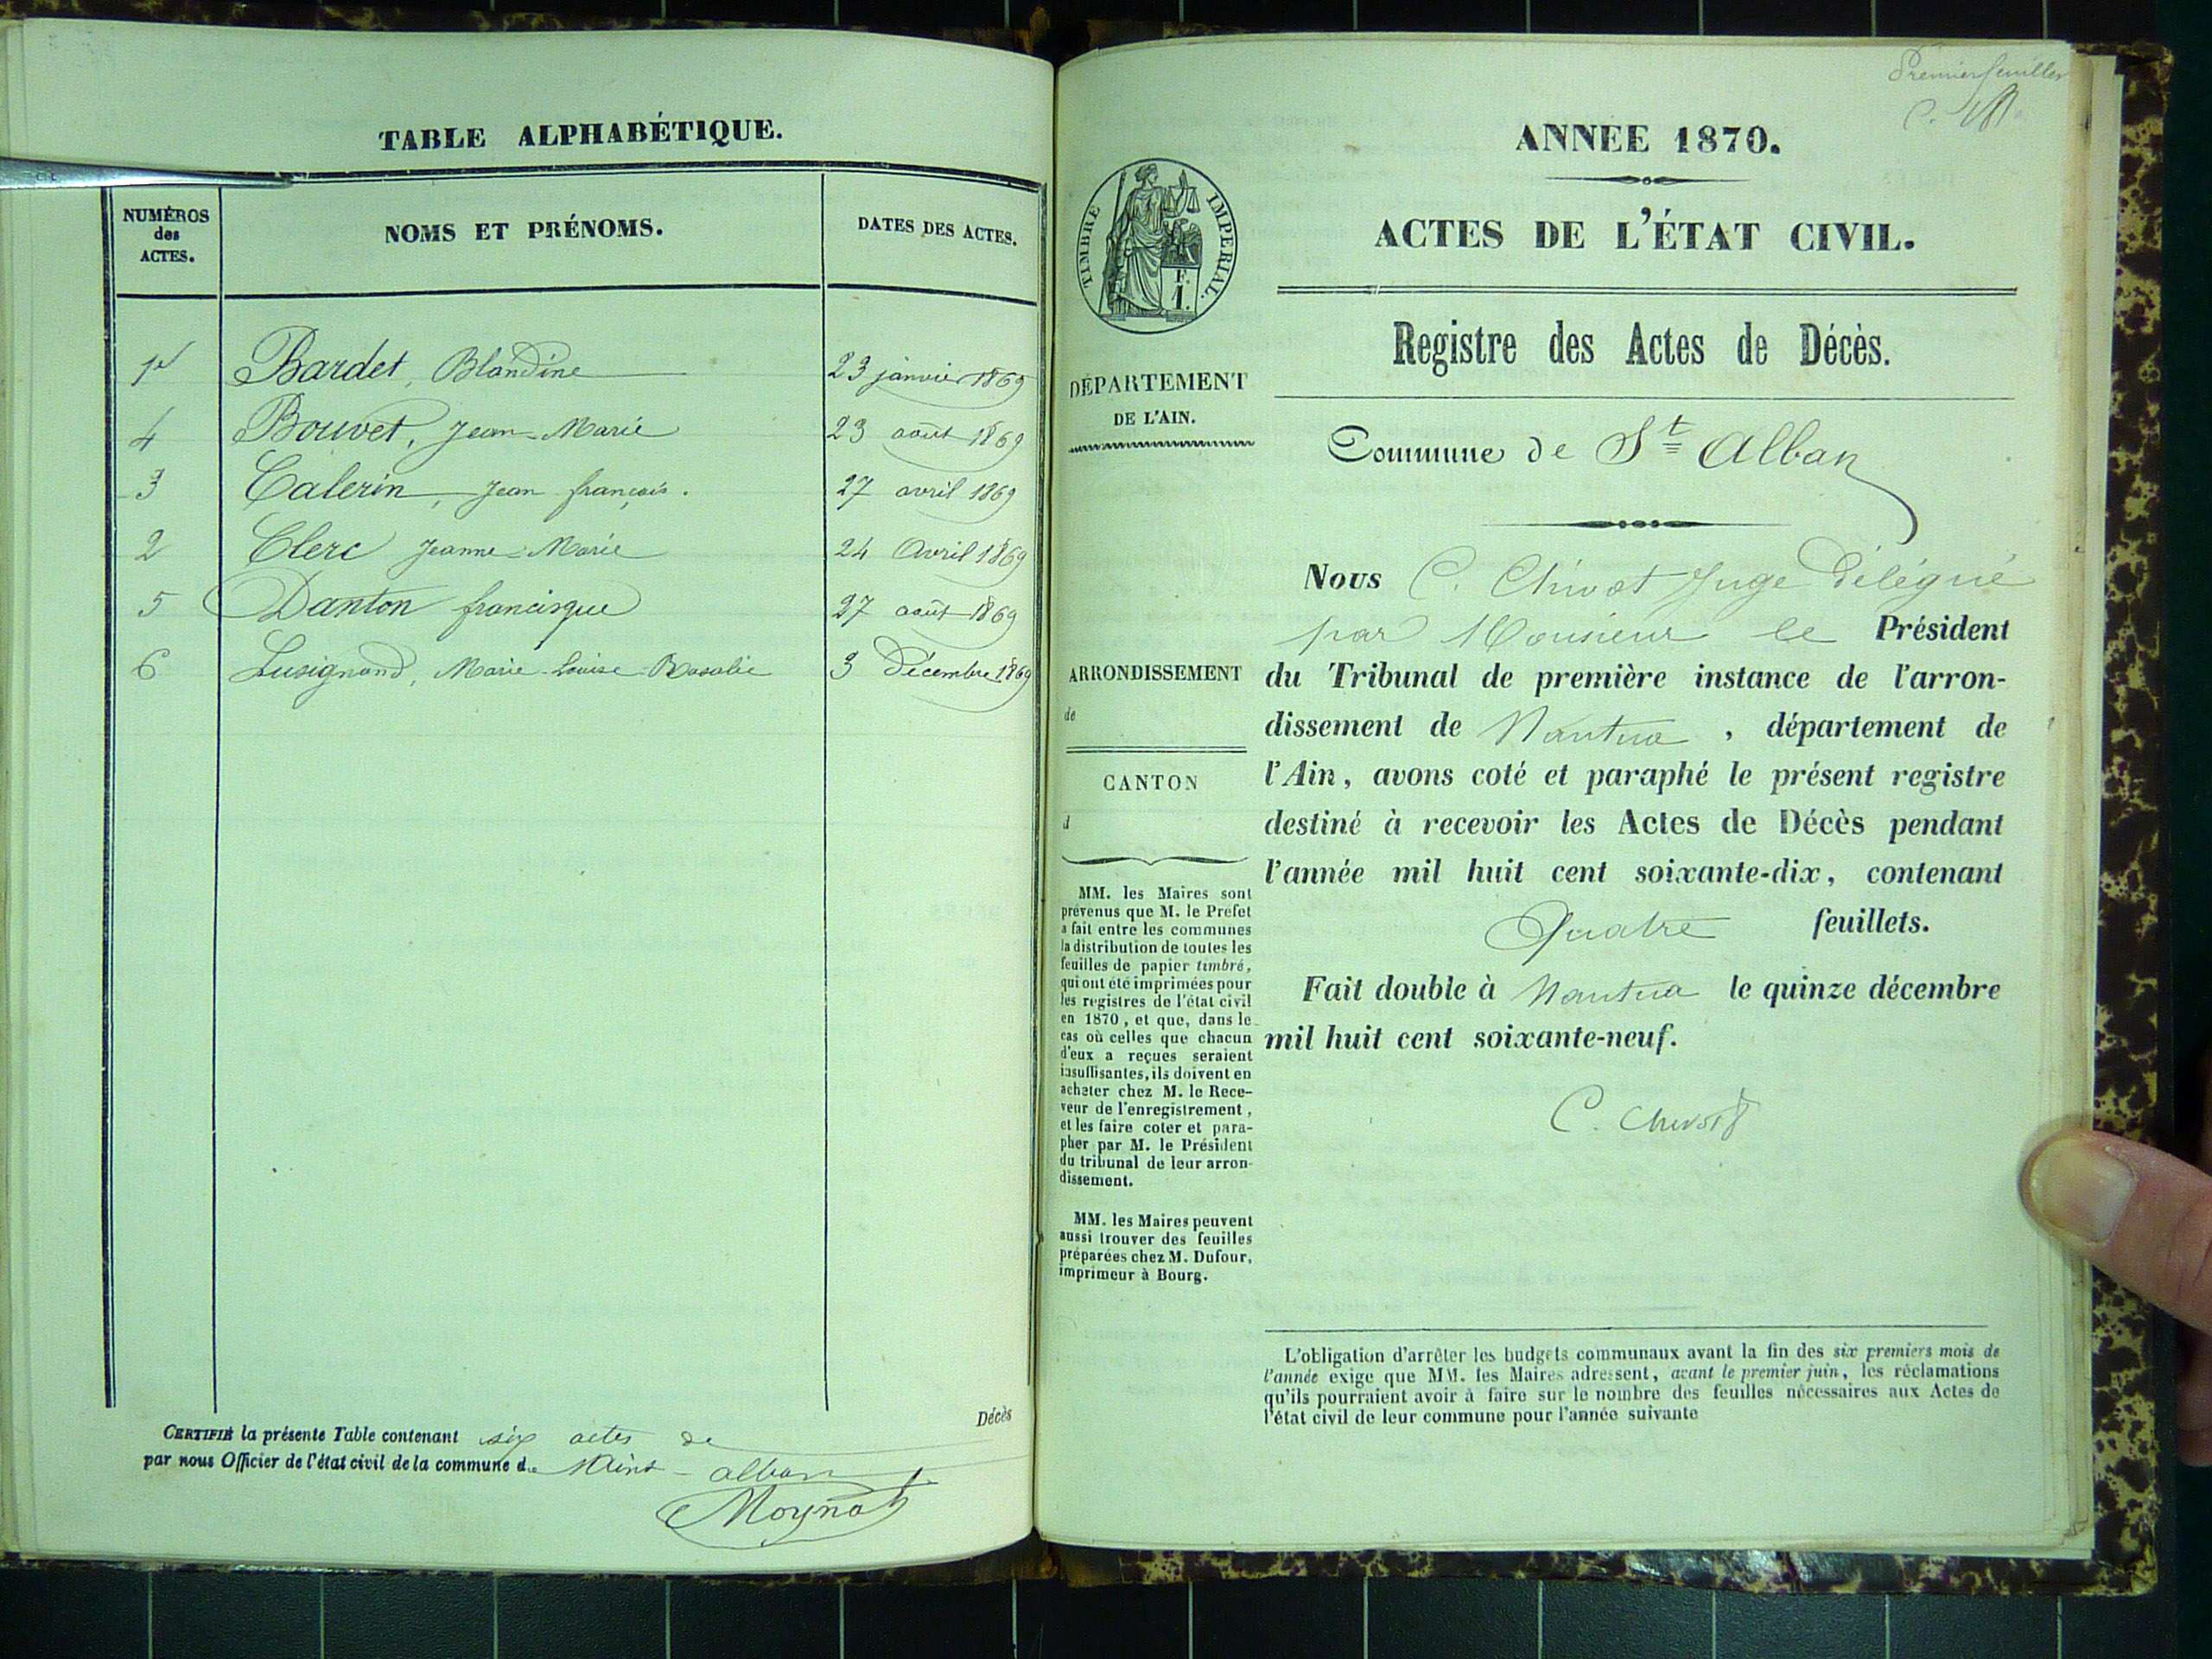 TABLE ALPHABÉTIQUE.
NUMÉROS des ACTES. NOMS ET PRÉNOMS. DATES DES ACTES.
1er Bardet, Blandine 23 janvier 1869
4 Bouvet, Jean-Marie 23 août 1869
3 Calerin, Jean françois. 27 avril 1869
2 Clerc Jeanne-Marie 24 Avril 1869
5 Danton francisque 27 août 1869
6 Lusignand, Marie-Louise-Rosalie 3 Décembre 1869
Décès
CERTIFIÉ la présente Table contenant six actes de
par nous Officier de l'état civil de la commune de Saint-alban
Moynat
Premier feuillet
ANNÉE 1870.
ACTES DE L'ÉTAT CIVIL.
Registre des Actes de Décès.
TIMBRE IMPÉRIAL.
DÉPARTEMENT
DE L'AIN.
ARRONDISSEMENT
de
CANTON
d
MM. les Maires sont
prévenus que M. le Préfet
a fait entre les communes
la distribution de toutes les
feuilles de papier timbré,
qui ont été imprimées pour
les registres de l'état civil
en 1870, et que, dans le
cas où celles que chacun
d'eux a reçues seraient
insuffisantes, ils doivent en
acheter chez M. le Rece-
veur de l'enregistrement,
et les faire coter et para-
pher par M. le Président
du tribunal de leur arron-
dissement.
MM. les Maires peuvent
aussi trouver des feuilles
préparées chez M. Dufour,
imprimeur à Bourg.
Commune de St Alban
Nous C. Chivot Juge Délégué
par Monsieur le Président
du Tribunal de première instance de l'arron-
dissement de Nantua, département de
l'Ain, avons coté et paraphé le présent registre
destiné à recevoir les Actes de Décès pendant
l'année mil huit cent soixante-dix, contenant
Quatre feuillets.
Fait double à Nantua le quinze décembre
mil huit cent soixante-neuf.
C. Chivot
L'obligation d'arrêter les budgets communaux avant la fin des six premiers mois de
l'année exige que MM. les Maires adressent, avant le premier juin, les réclamations
qu'ils pourraient avoir à faire sur le nombre des feuilles nécessaires aux Actes de
l'état civil de leur commune pour l'année suivante